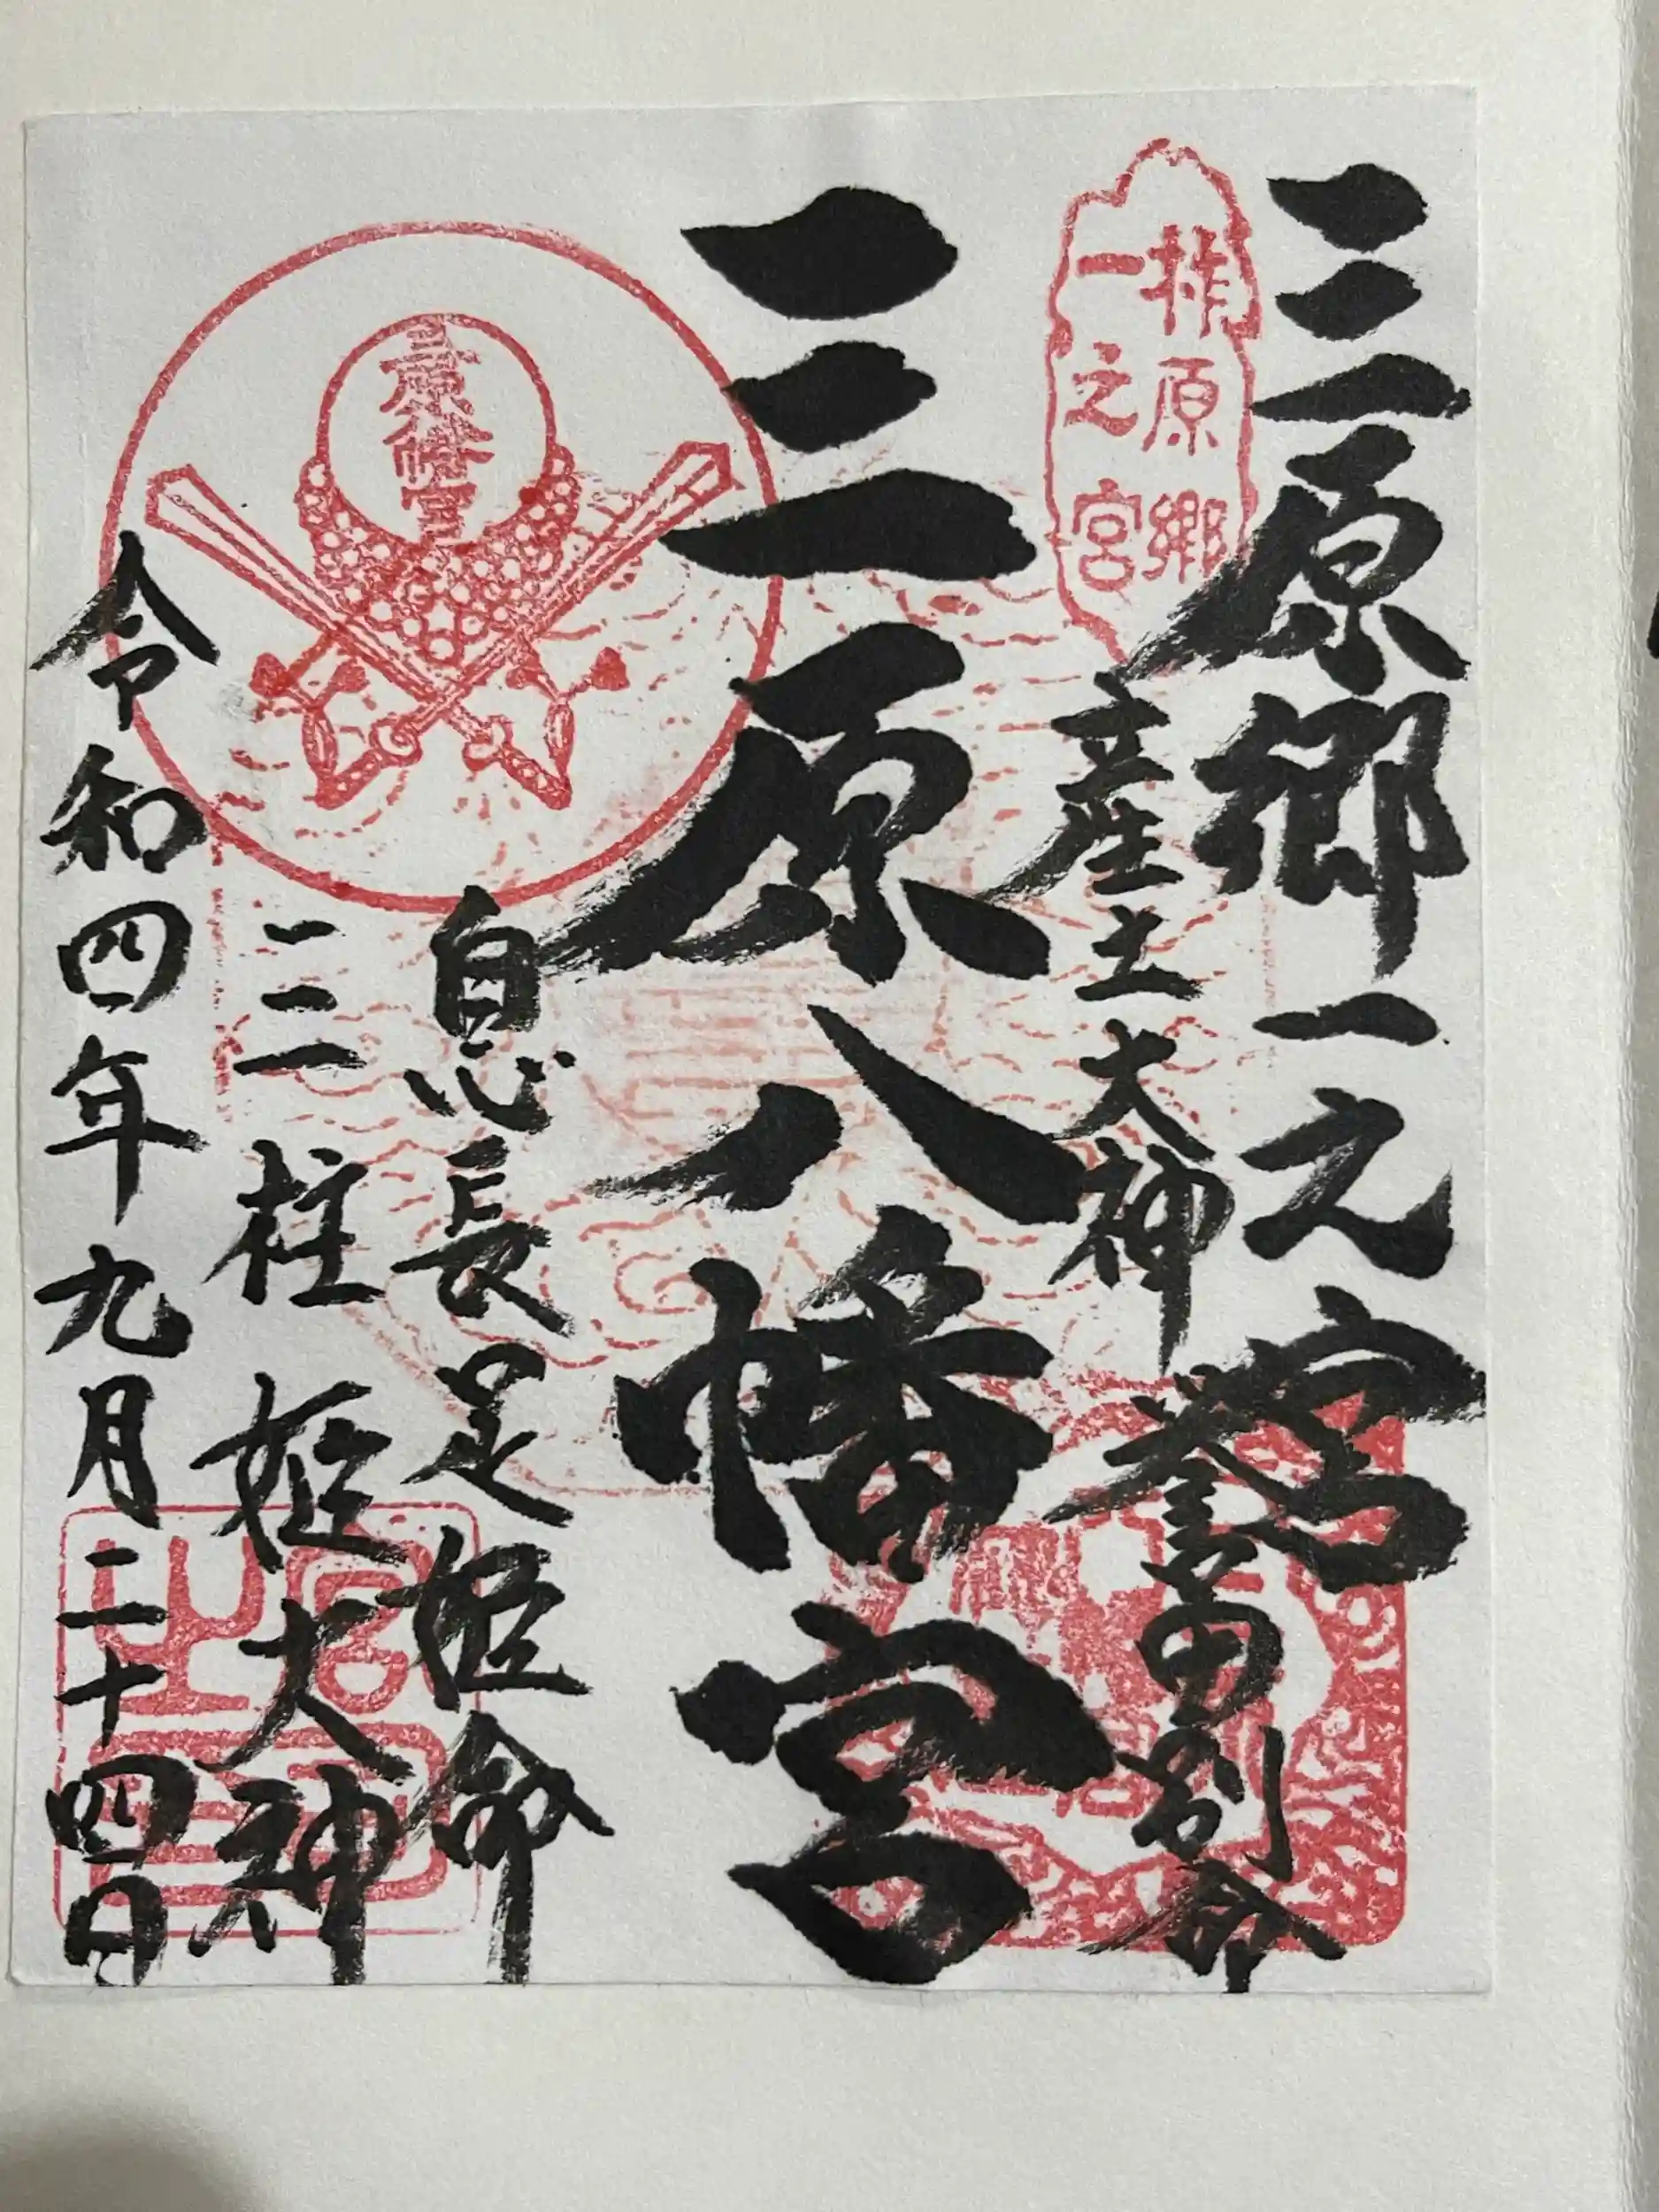 三原郷一之宮
一之宮
産土大神
誉田別命
三原八幡宮
三原八幡宮
息長足姫命
三柱姫大神
令和四年九月二十四日